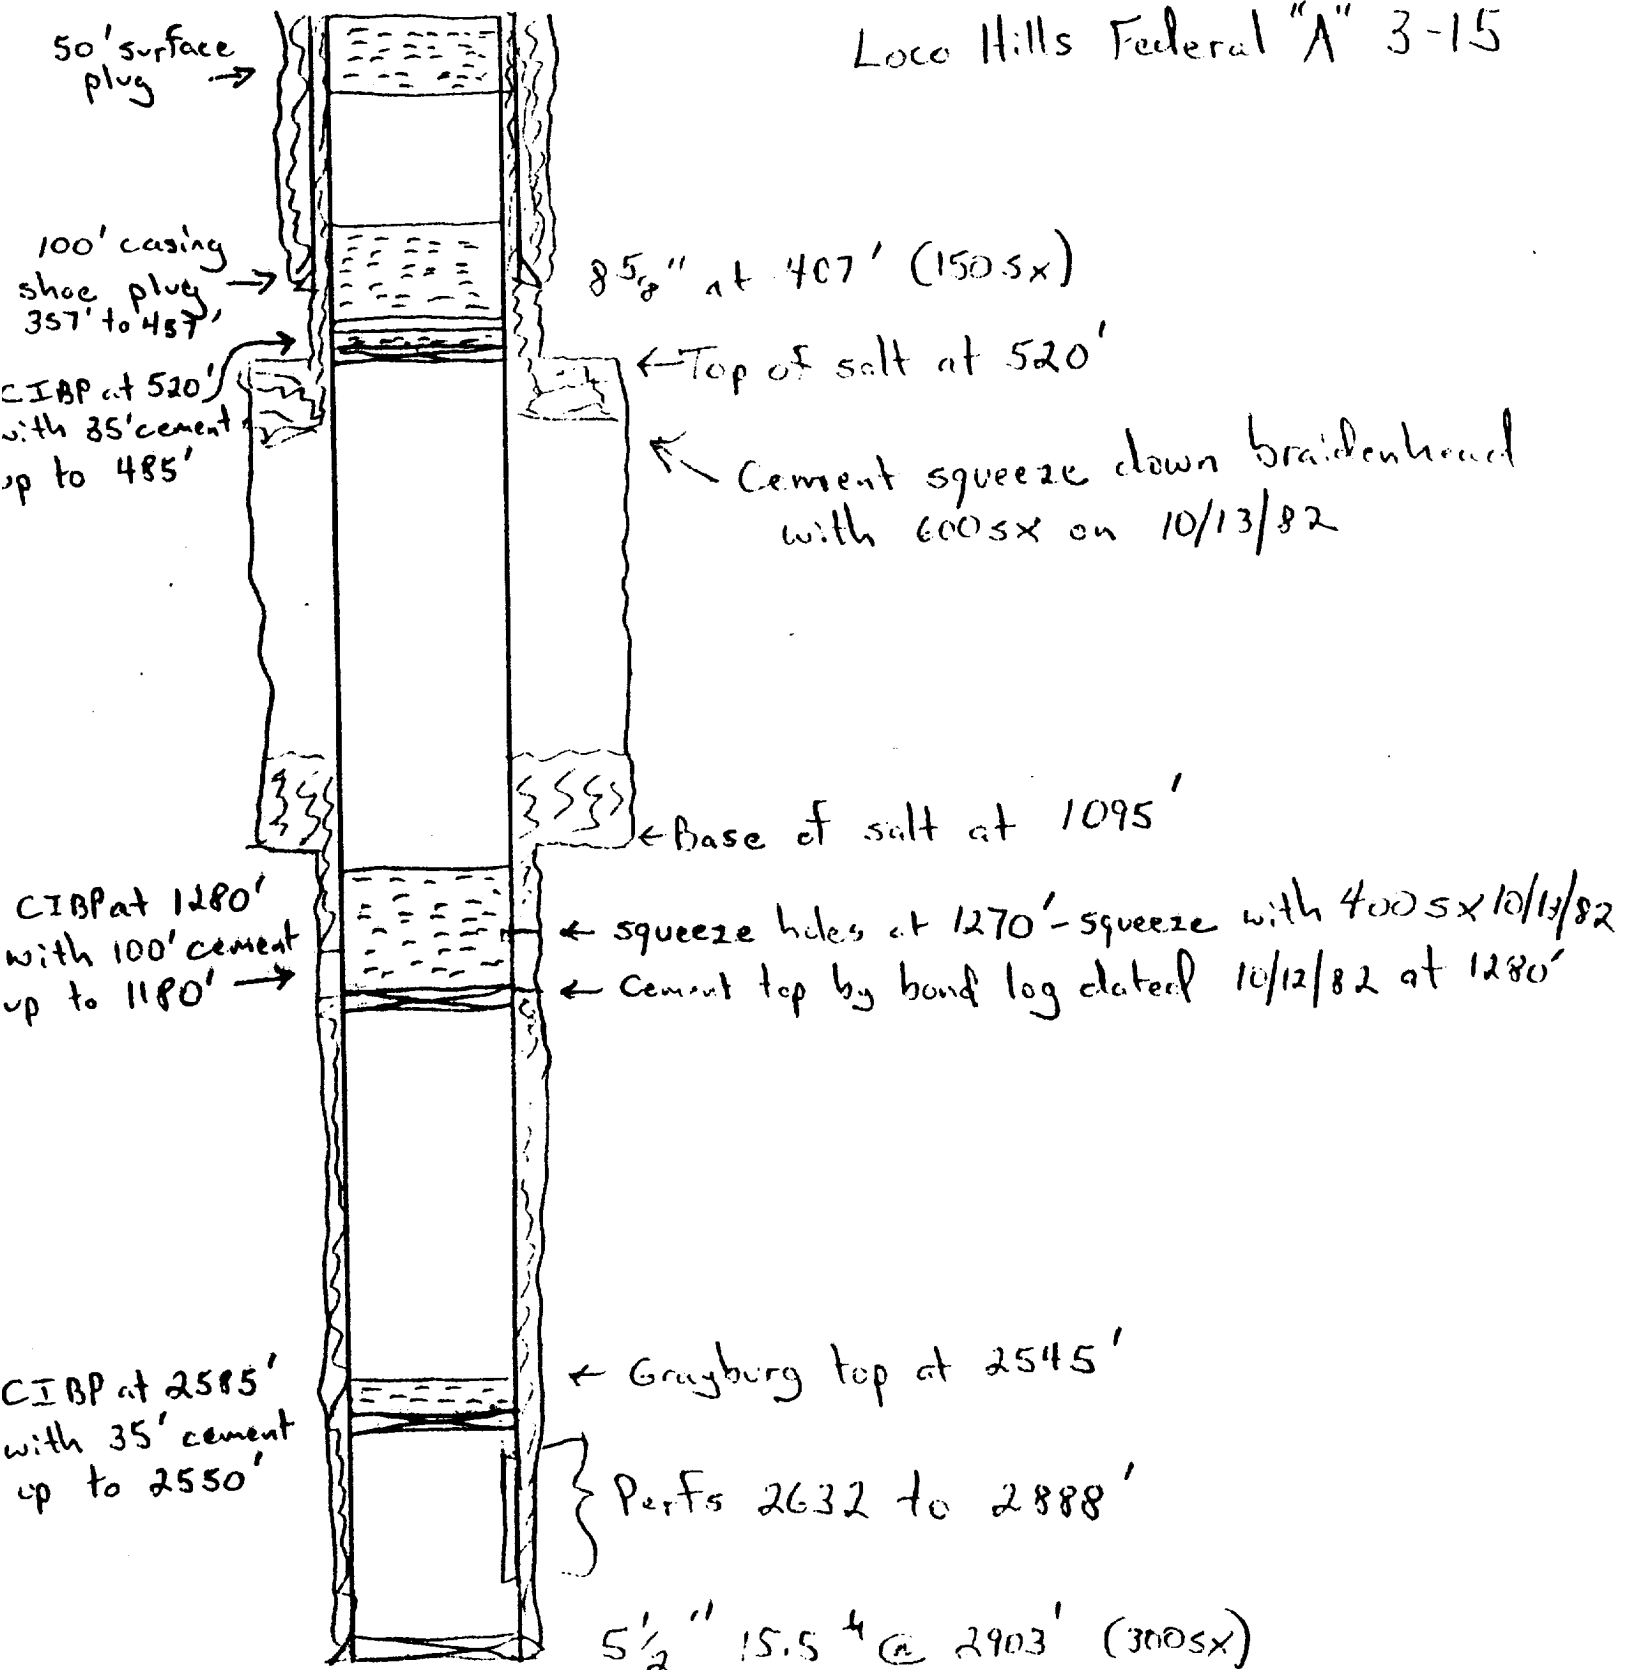 Loco Hills Federal "A" 3-15
50' surface
plug →
100' casing
shoe plug →
357' to 457'
8 5/8" at 407' (150sx)
←Top of salt at 520'
CIBP at 520'
with 35' cement
up to 485'
Cement squeeze down braidenhead
with 600sx on 10/13/82
←Base of salt at 1095'
CIBP at 1280'
with 100' cement
up to 1180' →
← squeeze holes at 1270'-squeeze with 400sx 10/13/82
← Cement top by bond log dated 10/12/82 at 1280'
← Grayburg top at 2545'
CIBP at 2585'
with 35' cement
up to 2550'
Perfs 2632 to 2888'
5 1/2" 15.5 # @ 2903' (300sx)